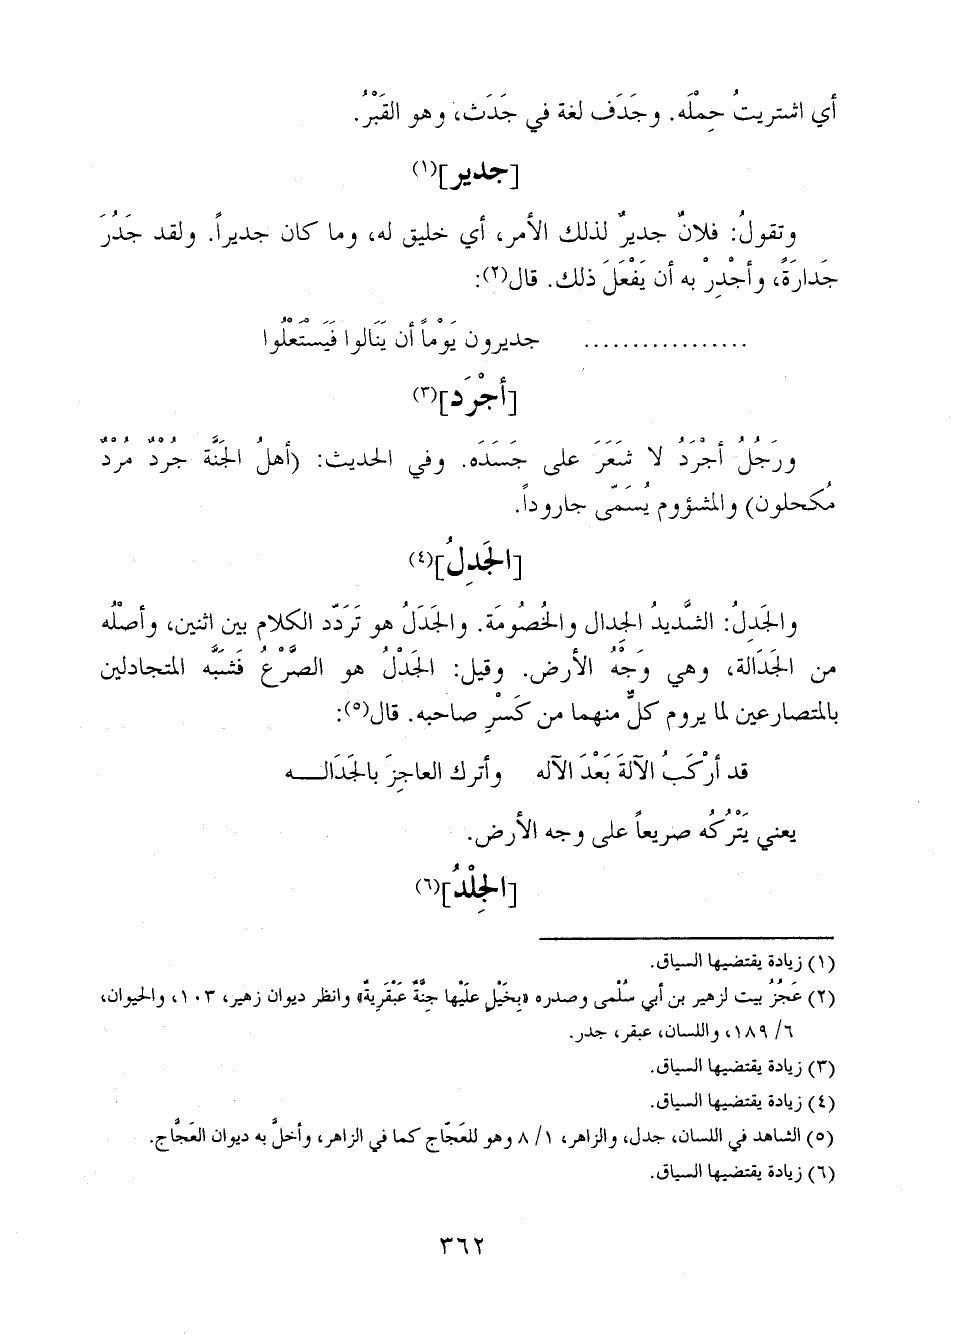 أي اشتريتُ حِمْلَه. وجَدَف لغة في جَدَث، وهو القَبْرُ.
[جدير](١)
وتقولُ: فلانٌ جديرٌ لذلك الأمر، أي خليق له، وما كان جديراً. ولقد جَدُرَ
جَدارَةً، وأجْدِرْ به أن يَفْعَلَ ذلك. قال(٢):
................. جديرون يَوْماً أن يَنَالوا فَيَسْتَعْلُوا
[أجْرَد](٣)
ورَجُلُ أجْرَدُ لا شَعَرَ على جَسَدَه. وفي الحديث: (أهلُ الجَنَّة جُرْدٌ مُرْدٌ
مُكحلون) والمشؤوم يُسَمّى جاروداً.
[الجَدِلُ](٤)
والجَدِلُ: الشَّديدُ الجِدال والخُصُومَة. والجَدَلُ هو تَرَدّد الكلام بين اثنين، وأصْلُه
من الجَدَالة، وهي وَجْهُ الأرض. وقيل: الجَدْلُ هو الصَّرْعُ فَشَبَّه المتجادلين
بالمتصارعين لما يروم كلٌّ منهما من كَسْرِ صاحبه. قال(٥):
قد أرْكَبُ الآلةَ بَعْدَ الآله وأترك العاجِزَ بالجَدَالـــه
يعني يَتْرُكُه صريعاً على وجه الأرض.
[الجِلْدُ](٦)
(١) زيادة يقتضيها السياق.
(٢) عَجُزُ بيت لزهير بن أبي سُلْمى وصدره «بِخَيْلٍ علَيْها جِنَّةٌ عَبْقَرِيةٌ» وانظر ديوان زهير، ١٠٣، والحيوان،
٦/ ١٨٩، واللسان، عبقر، جدر.
(٣) زيادة يقتضيها السياق.
(٤) زيادة يقتضيها السياق.
(٥) الشاهد في اللسان، جدل، والزاهر، ١/ ٨ وهو للعَجّاج كما في الزاهر، وأخلَّ به ديوان العَجَّاج.
(٦) زيادة يقتضيها السياق.
٣٦٢